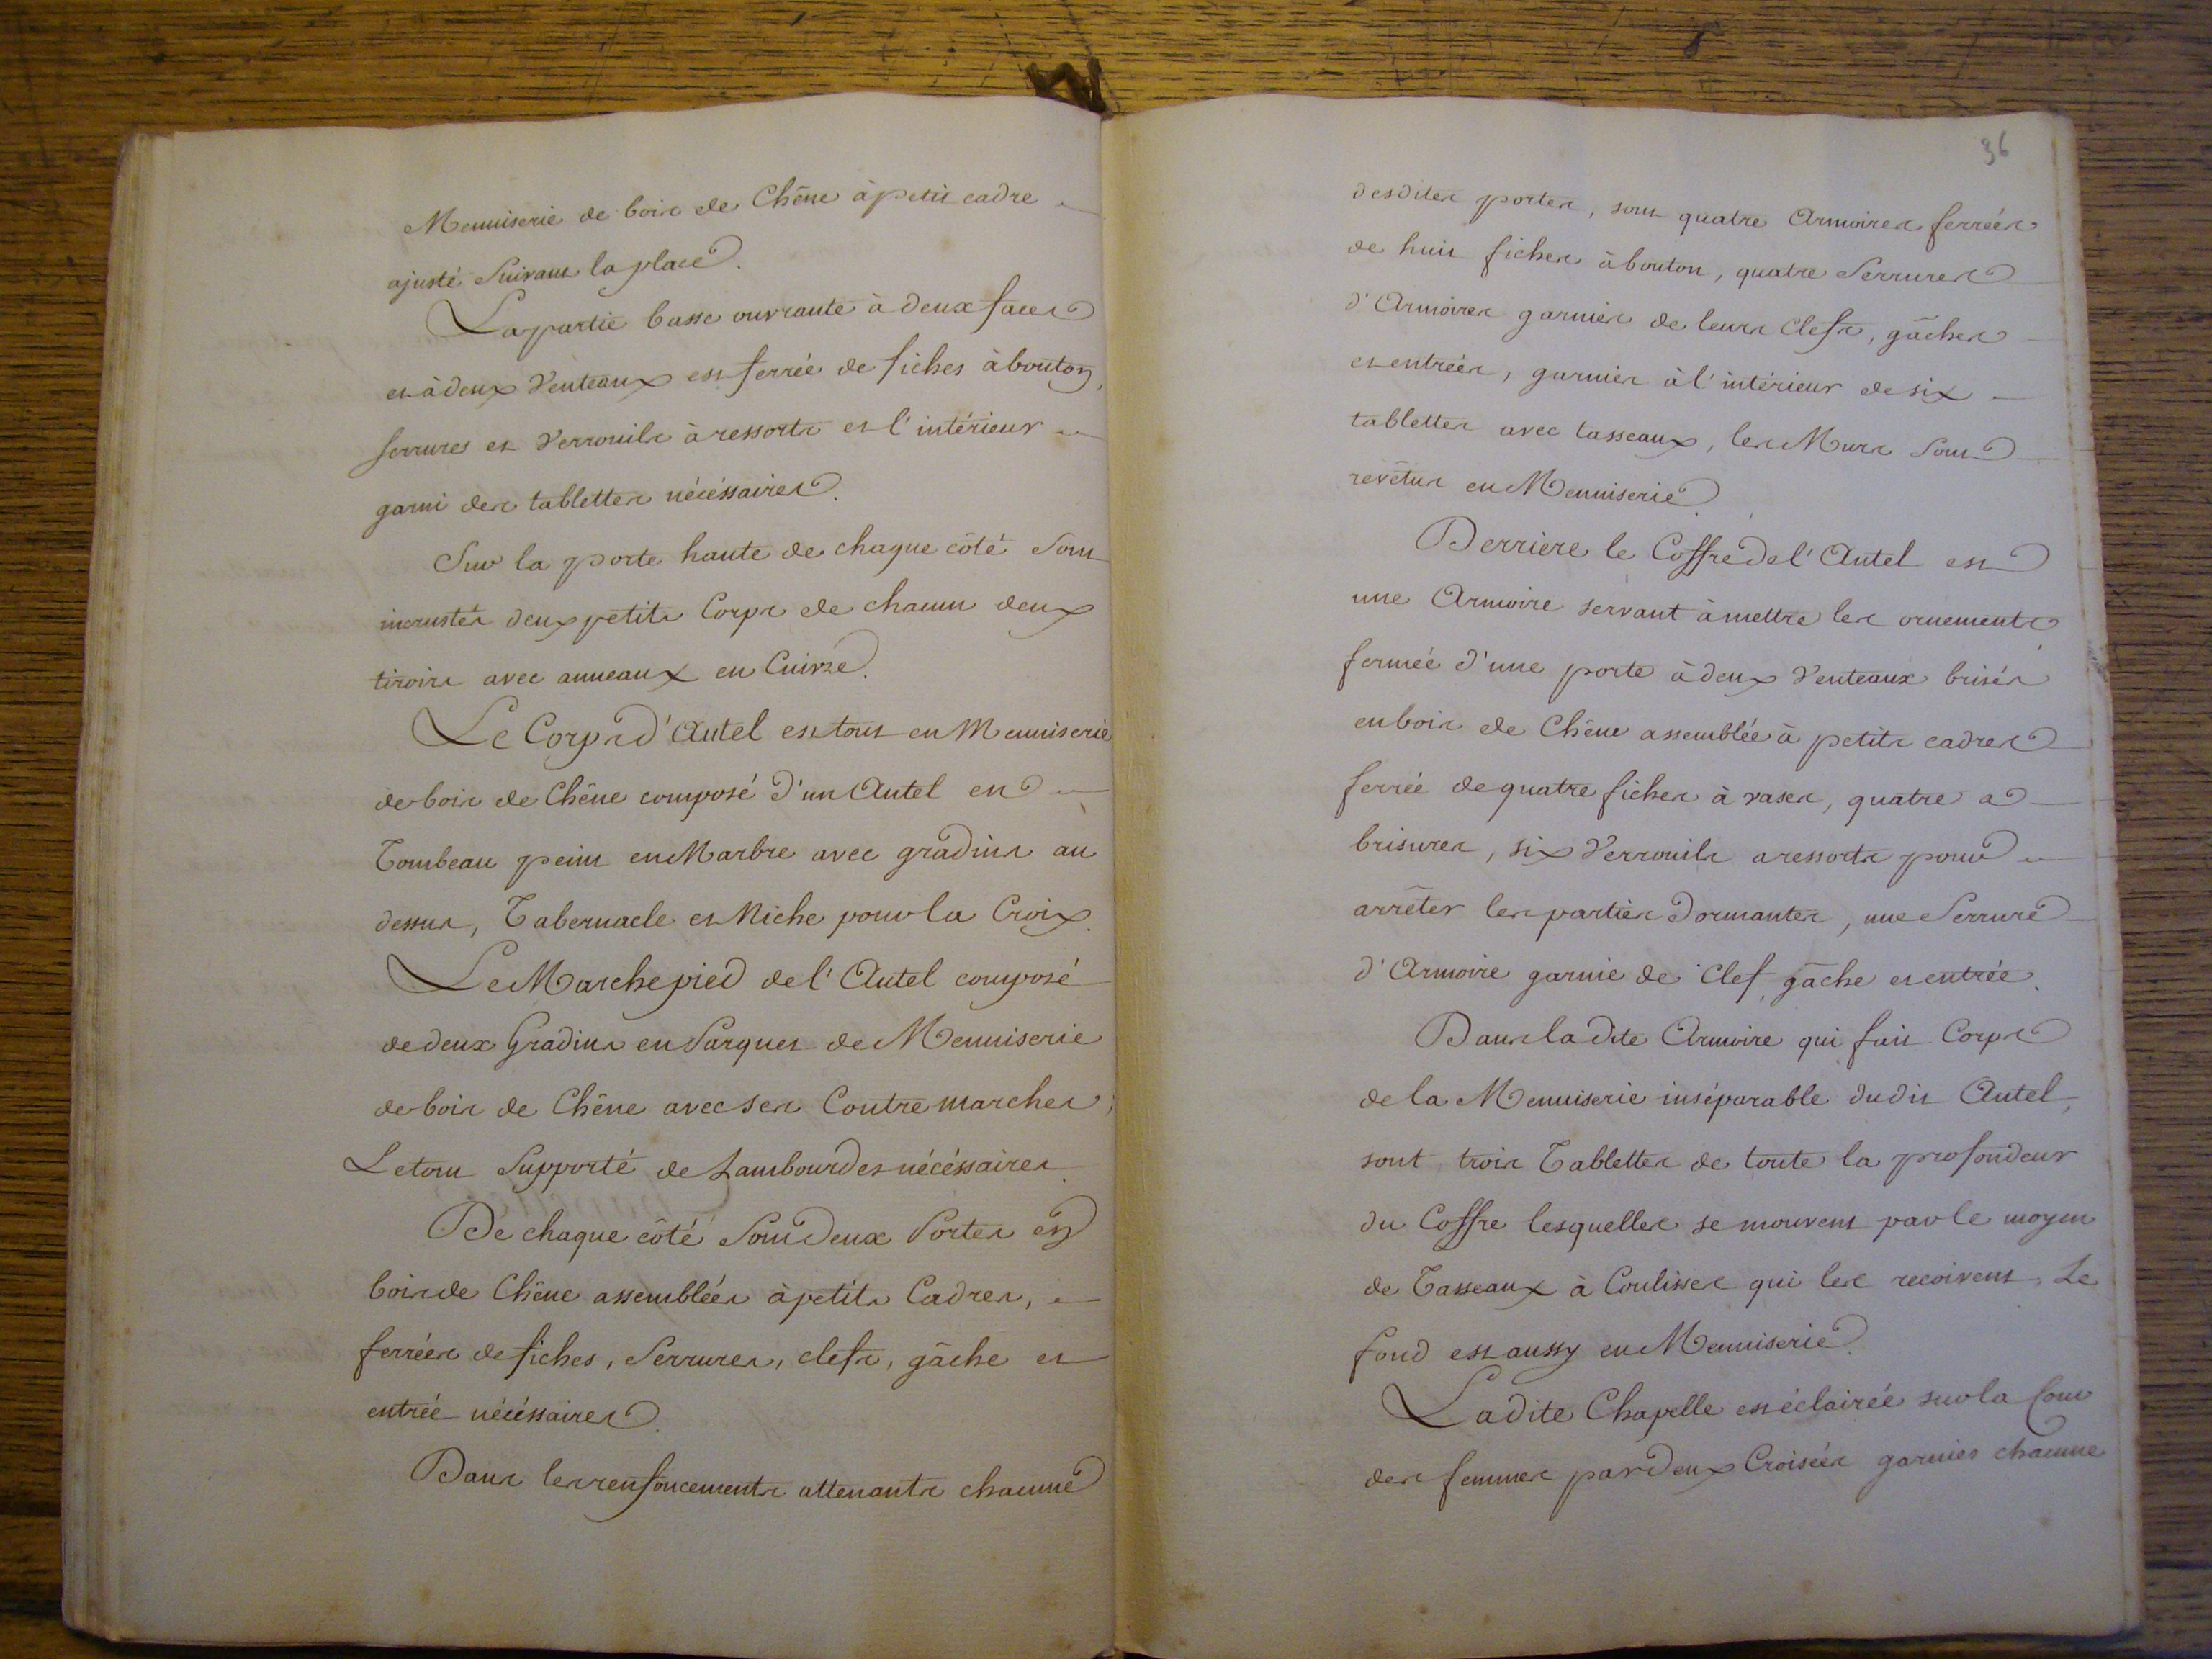 Menuiserie de bois de Chêne à petit cadre
ajusté Suivant la place.
La partie basse ouvrante à deux faces
et à deux Venteaux est ferrée de fiches à bouton,
serrures et Verrouils à ressorts et l'intérieur
garni des tablettes nécéssaires.
Sur la porte haute de chaque côté Sont
incrustés deux petits Corps de chacun deux
tiroirs avec anneaux en Cuivre.
Le Corps d'Autel est tout en Menuiserie
de bois de Chêne composé d'un Autel en
Tombeau peint en Marbre avec gradins au
dessus, Tabernacle et Niche pour la Croix.
Le Marchepied de l'Autel composé
de deux Gradins en Parquet de Menuiserie
de bois de Chêne avec ses Contre marches,
Le tout Supporté de Lambourdes nécéssaires.
De chaque côté Sont deux Portes en
bois de Chêne assemblées à petits Cadres,
ferrées de fiches, Serrures, clefs, gâche et
entrée nécéssaires.
Dans les renfoncements attenants chacune
36
desdites portes, sont quatre Armoires ferrées
de huit fiches à bouton, quatre Serrures
d'Armoires garnies de leurs Clefs, gâches
et entrées, garnies à l'intérieur de six
tablettes avec tasseaux, les Murs Sont
revêtus en Menuiserie.
Derriere le Coffre de l'Autel est
une Armoire servant à mettre les ornements
fermée d'une porte à deux Venteaux brisés
en bois de Chêne assemblée à petits cadres
ferrée de quatre fiches à vases, quatre a
brisures, six Verrouils a ressorts pour
arrêter les parties Dormantes, une Serrure
d'Armoire garnie de Clef, gâche et entrée.
Dans la dite Armoire qui fait Corps
de la Menuiserie inséparable dudit Autel,
sont trois Tablettes de toute la profondeur
du Coffre lesquelles se mouvent par le moyen
de Tasseaux à Coulisses qui les recoivent, Le
fond est aussy en Menuiserie.
Ladite Chapelle est éclairée sur la Cour
des femmes par deux Croisées garnies chacune